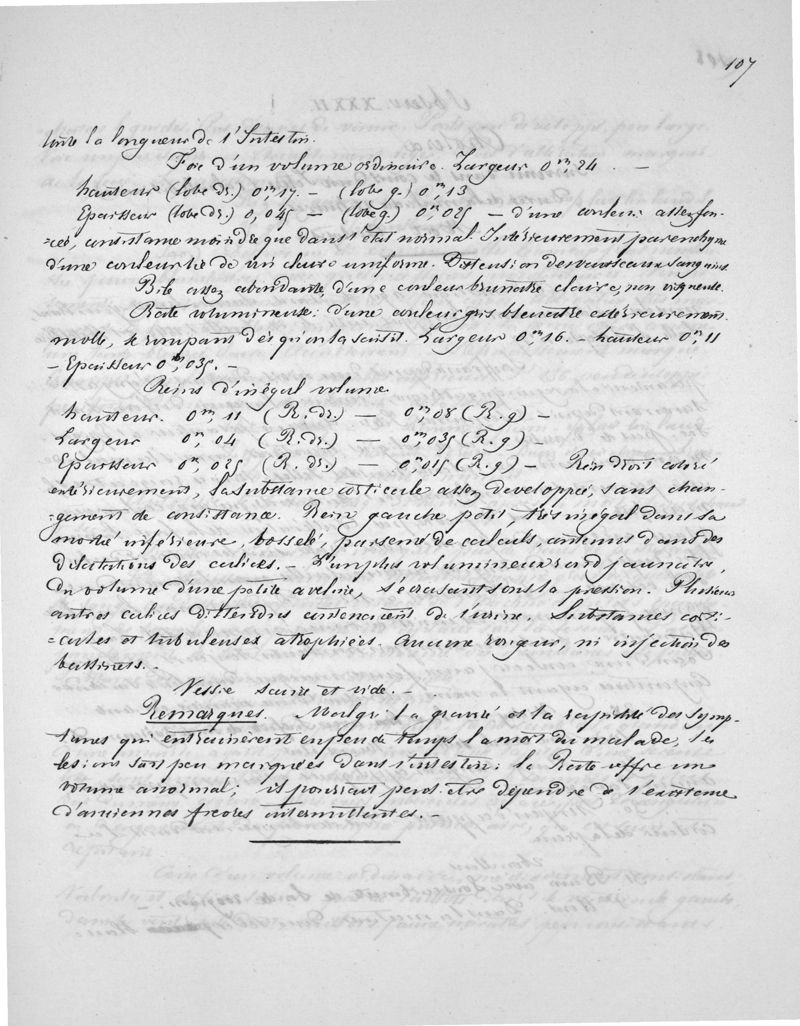 107
toute la longueur de l'Intestin.
Foie d'un volume ordinaire. Largeur 0m,24 –
hauteur (lobe dr.) 0m,17. – (lobe g.) 0m,13
Epaisseur (lobe dr.) 0,045 – (lobe g.) 0m,025 – d'une couleur assez fon-
=cée, consistance moindre que dans l'état normal. Intérieurement parenchyme
d'une couleur lie de vin claire uniforme. Distension des vaisseaux sanguins.
Bile assez abondante, d'une couleur brunâtre claire, non visqueuse.
Rate volumineuse: d'une couleur gris bleuâtre extérieurement.
molle, se rompant dès qu'on la saisit. Largeur 0m,16. – hauteur 0m,11
– Epaisseur 0m,035. –
Reins d'inégal volume.
hauteur. 0m,11 (R. dr.) — 0m,08 (R. g) –
Largeur 0m,04 (R. dr.) — 0m,035 (R. g) –
Epaisseur 0m,025 (R. dr.) — 0m,015 (R. g) – Rein droit coloré
extérieurement, la substance corticale assez developpée, sans chan-
=gement de consistance. Rein gauche petit, très inégal dans sa
moitié inférieure, bosselé, parsemé de calculs, contenus dans des
dilatations des calices. – L'un plus volumineux rond jaunâtre,
du volume d'une petite aveline, s'écrasant sous la pression. Plusieurs
autres calices distendus contenaient de l'urine. Substances corti-
=cales et tubuleuses atrophiées. Aucune rougeur, ni injection des
bassinets. –
Vessie saine et vide. –
Remarques. Malgré la gravité et la rapidité des symp-
tômes qui entrainèrent en peu de temps la mort du malade, les
lesions sont peu marquées dans l'intestin: la Rate offre un
volume anormal; il pourrait peut être dépendre de l'existence
d'anciennes fièvres intermittentes. –